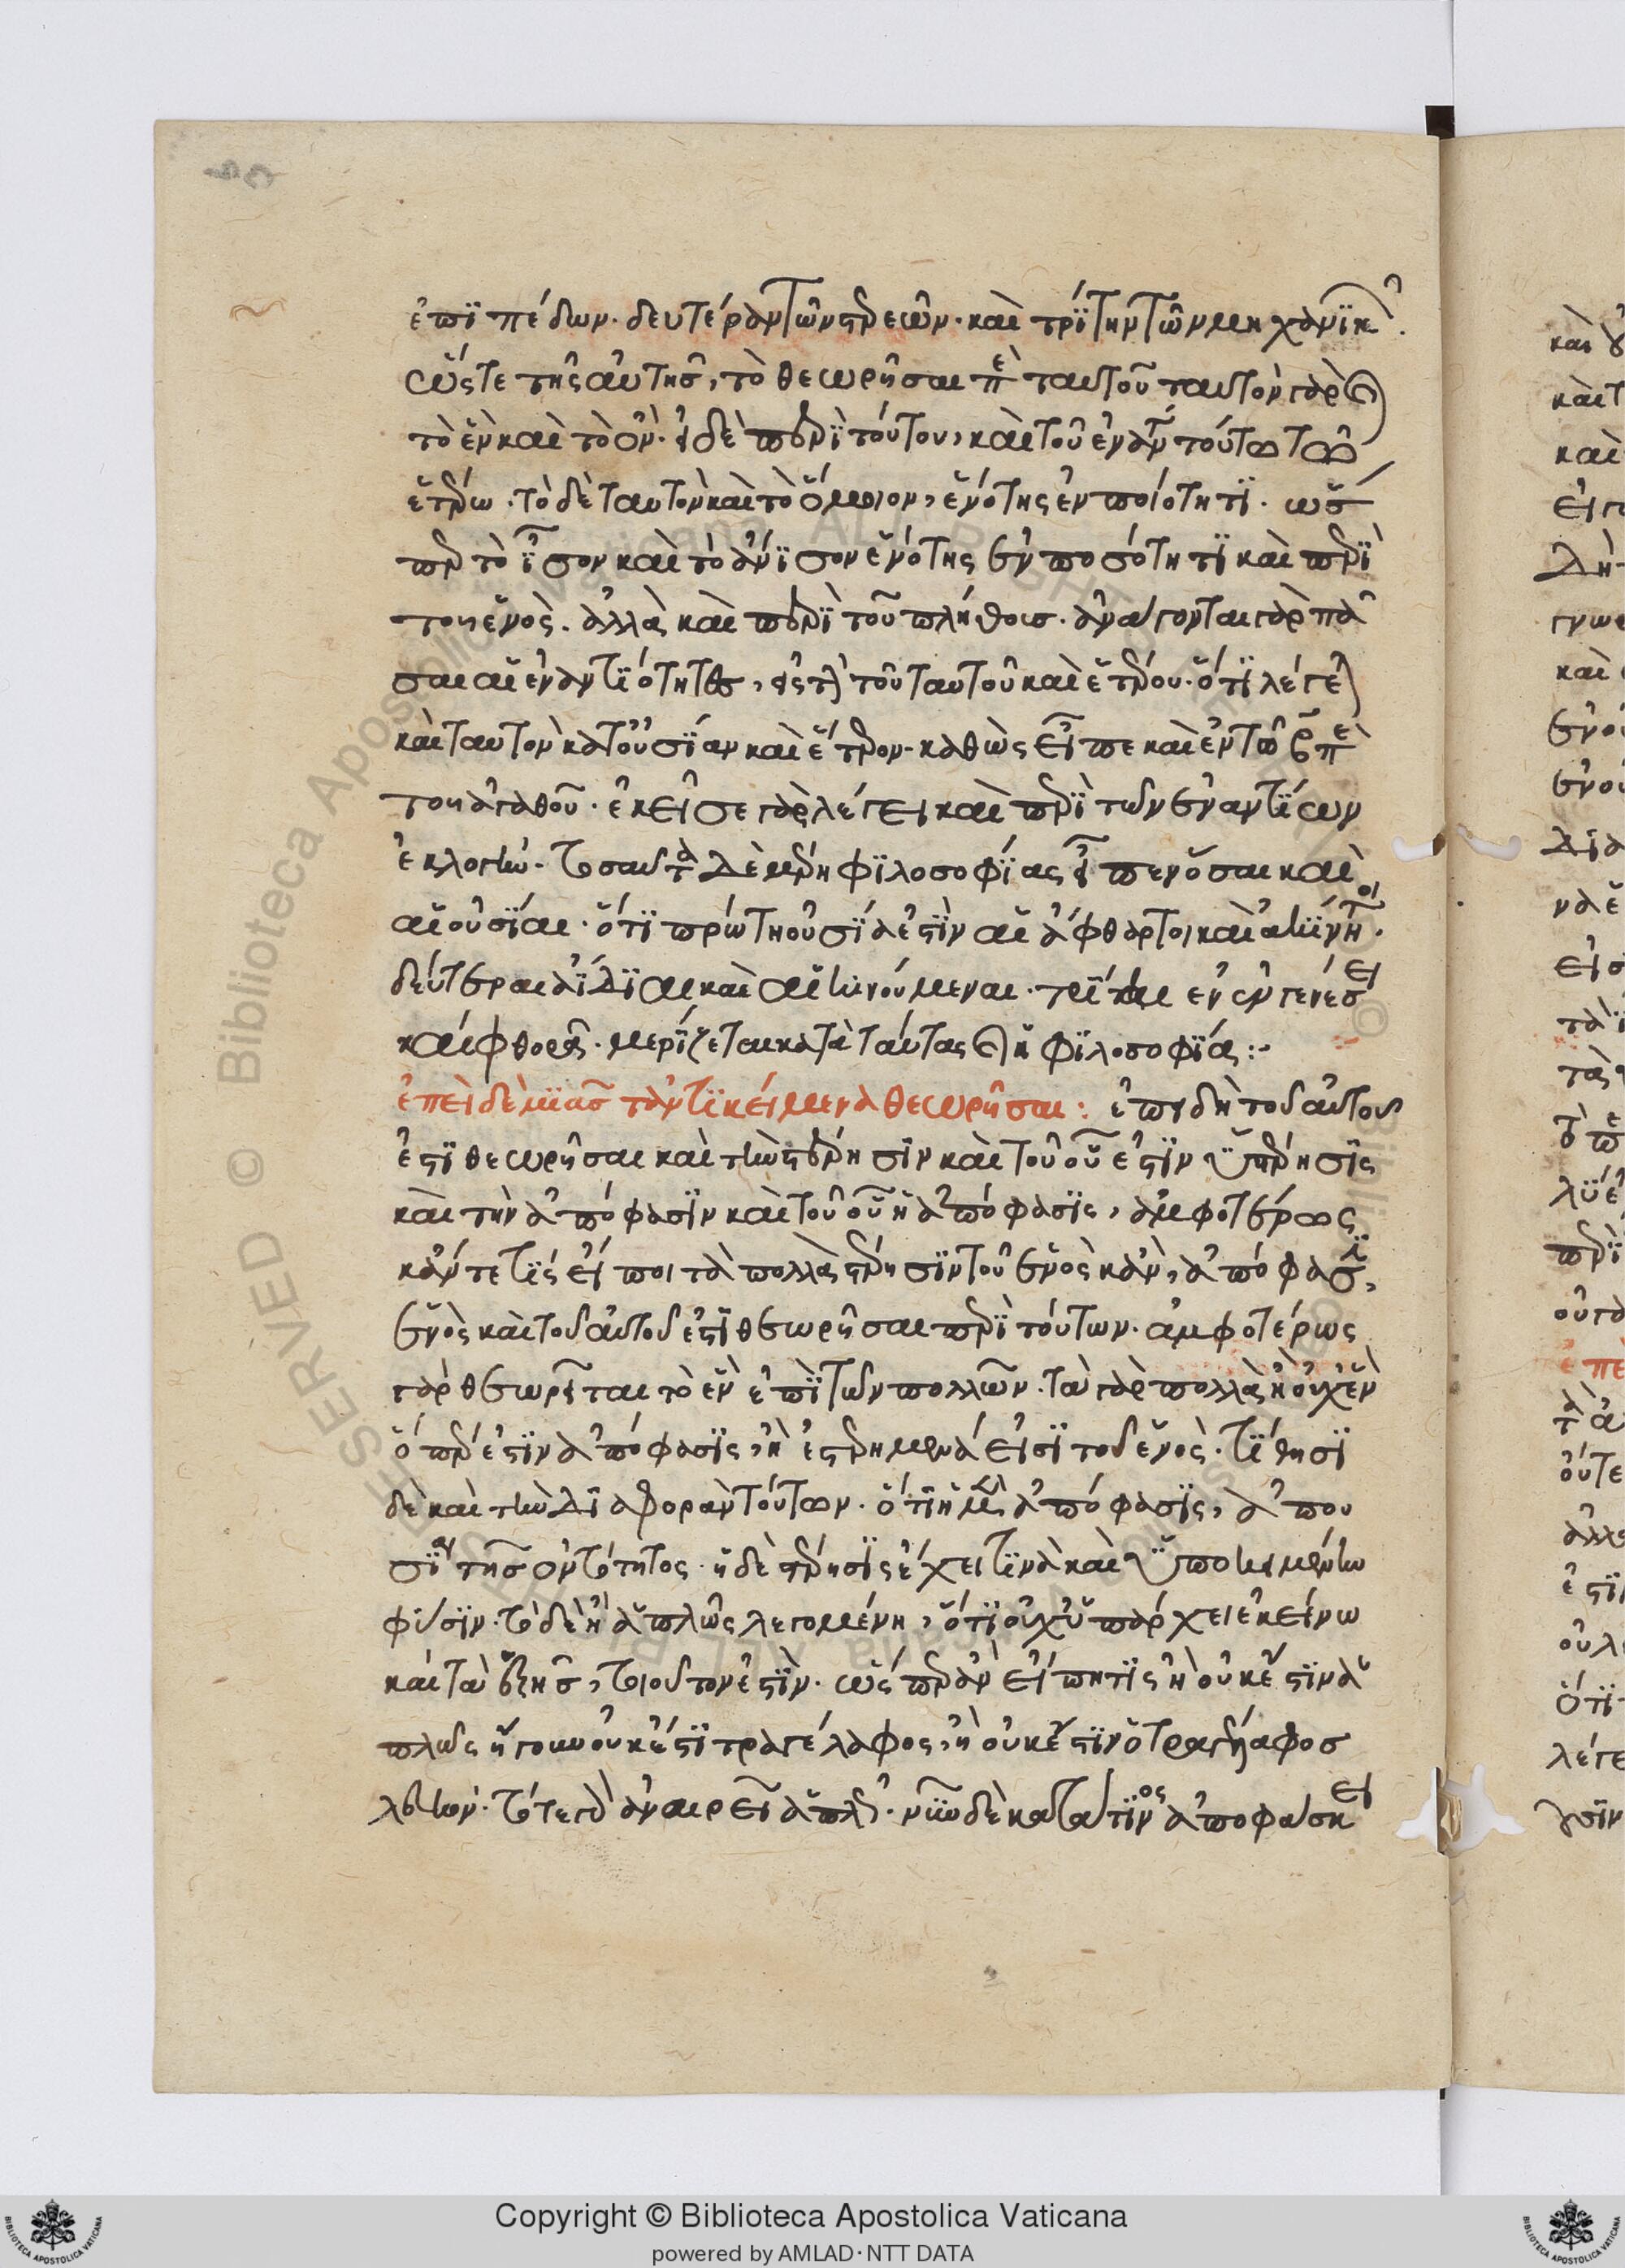 ἐπιπέδων. δευτέραν τῶν στερεῶν. καὶ τρίτην τῶν μηχανικ
ὥστε τῆς αὐτῆς, τὸ θεωρῆσαι περὶ ταυτοῦ ταυτὸν γὰρ
τὸ ἓν καὶ τὸ ὄν. εἰ δὲ περὶ τούτου, καὶ τοῦ ἐναντίου τούτω τῶ
ἑτέρω. τὸ δὲ ταυτὸν καὶ τὸ ὅμοιον, ἑνότης ἐν ποιότητι. ὥσ
περ τὸ ἴσον καὶ τὸ ἄνισον ἑνότης ἐν ποσότητι καὶ περὶ
τοῦ ἑνὸς. ἀλλὰ καὶ περὶ τοῦ πλήθους. ἀνάγονται γὰρ πᾶ
σαι αἱ ἐναντιότητες, εἰς τὴν τοῦ ταυτοῦ καὶ ἑτέρου. ὅτι λέγε
καὶ ταυτὸν κατ οὐσίαν καὶ ἕτερον. καθὼς εἶπε καὶ ἐν τῶ περὶ
τοῦ ἀγαθοῦ. ἐκεῖσε γὰρ λέγει καὶ περὶ τῶν ἐναντίων
ἐκλογὴν. τοσαῦτα δὲ μέρη φιλοσοφίας εἶπεν ὅσαι καὶ
αἱ οὐσίαι. ὅτι πρώτη οὐσία ἐστὶν αἱ ἄφθαρτοι καὶ ἀκίνητοι.
δεύτεραι ἀΐδιαι καὶ αἱ κινούμεναι. τρίται ἐν γενέσει
καὶ φθορᾶ. μερίζεται κατὰ ταύτας ἡ φιλοσοφία:-
ἐπεὶ δὲ μιᾶς τἀντικείμενα θεωρῆσαι: ἐπειδὴ τοῦ αὐτοῦ
ἐστι θεωρῆσαι καὶ τὴν στέρησιν καὶ τοῦ οὗ ἐστιν ἡ στέρησις
καὶ τὴν ἀπόφασιν καὶ τοῦ οὗ ἡ ἀπόφασις, ἀμφοτέρως
κἄν τε τὶς εἴποι τὰ πολλὰ στέρησιν τοῦ ἑνὸς κἂν, ἀπόφασιν,
ἑνὸς καὶ τοῦ αὐτοῦ ἐστι θεωρῆσαι περὶ τούτων. ἀμφοτέρως
γὰρ θεωρεῖται τὸ ἓν ἐπὶ τῶν πολλῶν. τὰ γὰρ πολλὰ ἢ οὐχ ἓν
ὅπερ ἐστὶν ἀπόφασις, ἢ ἐστερημένα εἰσὶ τοῦ ἑνὸς. τίθησι
δὲ καὶ τὴν διαφορὰν τούτων. ὅτι ἡ μὲν ἀπόφασις, ἀπου
σία τῆς ὀντότητος. ἡ δὲ στέρησις ἔχει τινὰ καὶ ὑποκειμένην
φύσιν. τὸ δὲ ἢ ἁπλῶς λεγομένη, ὅτι οὐχ ὑπάρχει ἐκείνω
καὶ τὰ ἑξῆς, τοιοῦτον ἐστὶν. ὥσπερ ἂν εἴπη τὶς ἢ οὐκ ἔστιν ἁ
πλῶς ἤγουν οὐκ ἔστι τραγέλαφος, ἢ οὐκ ἔστιν ὁ τραγέλαφος
λευκὸν. τότε ἀναιρεῖ ἁπλῶς. νῦν δὲ κατά τινος ἀποφάσκει